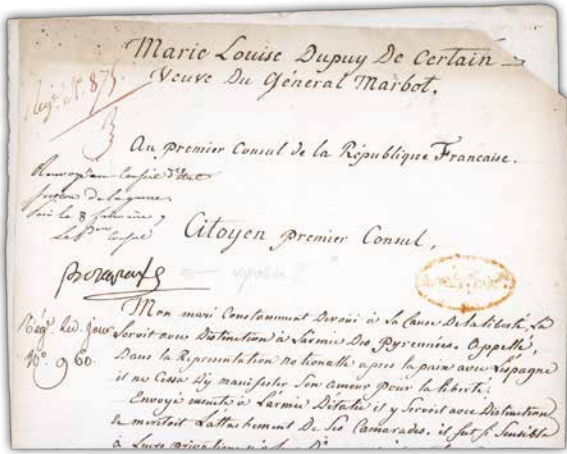 Marie Louise Dupuy De Certain
Veuve Du Général Marbot.
Regé. Nº. 875
Au premier Consul de la République Francaise.
Renvoyé au Conseil d'Etat
section de la guerre
le 8
Le Per Consul
Citoyen premier Consul,
Bonaparte
Mon mari Constamment Devoué à la Cause De la liberté, La
Servit avec Distinction à L'armée Des Pyrennées. Appellé,
Dans la Representation nationalle apres la paix avec L'espagne
il ne Cessa D'y manifester Son amour pour la liberté.
Envoyé ensuite à L'armée D'italie il y Servit avec Distinction
& meritoit L'attachement De Ses Camarades. il fut si Sensible
à Leurs privations
Nº. 960.